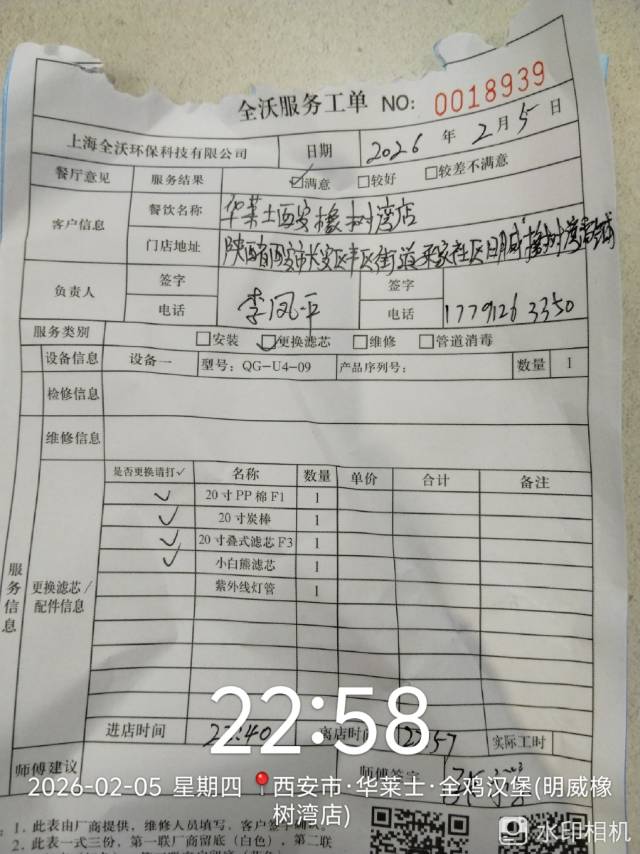 全沃服务工单 NO: 0018939
上海全沃环保科技有限公司 日期 2026 年 2 月 5 日
餐厅意见 服务结果 ☑满意 □较好 □较差不满意
客户信息 餐饮名称 华莱士西安橡树湾店
门店地址 陕西省西安市长安区
负责人 签字 李凤平 签字
电话 电话 17791263350
服务类别 □安装 ☑更换滤芯 □维修 □管道消毒
设备信息 设备一 型号：QG-U4-09 产品序列号： 数量 1
检修信息
维修信息
服务信息
更换滤芯/配件信息
是否更换请打✓ 名称 数量 单价 合计 备注
✓ 20寸PP棉F1 1
✓ 20寸炭棒 1
✓ 20寸叠式滤芯F3 1
✓ 小白熊滤芯 1
紫外线灯管 1
22:58
进店时间 22:40 离店时间 22:57 实际工时
师傅建议 师傅签字
2026-02-05 星期四 西安市·华莱士·全鸡汉堡(明威橡树湾店)
1、此表由厂商提供，维修人员填写，客户签字确认。
2、此表一式三份，第一联厂商留底（白色），第二联
水印相机